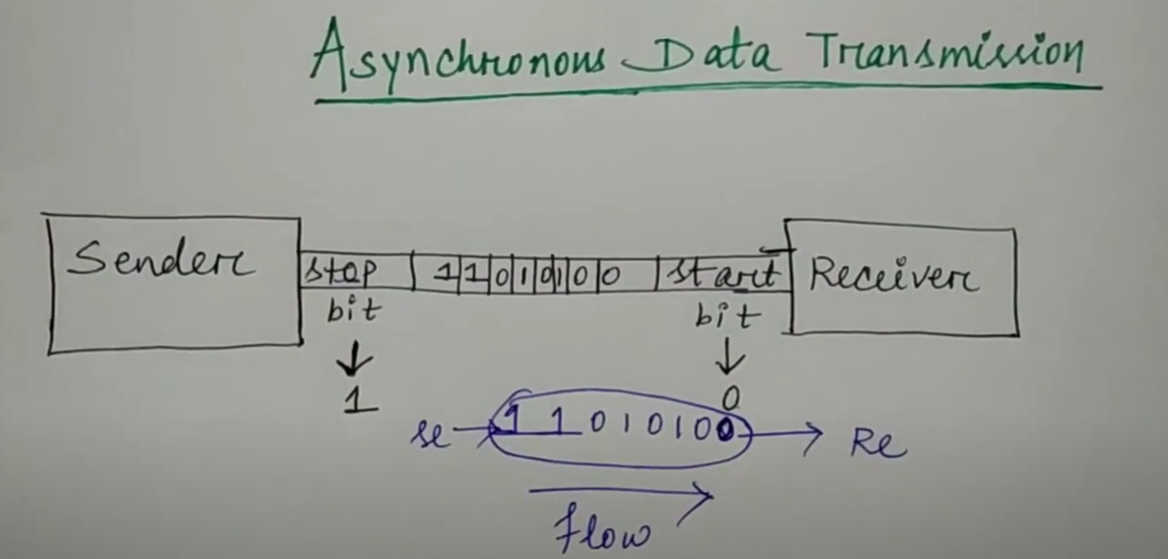 Asynchronous Data Transmission
Sender
stop
1 1 0 1 0 1 0 0
start
Receiver
bit
bit
1
0
se
1 1 0 1 0 1 0 0
Re
flow